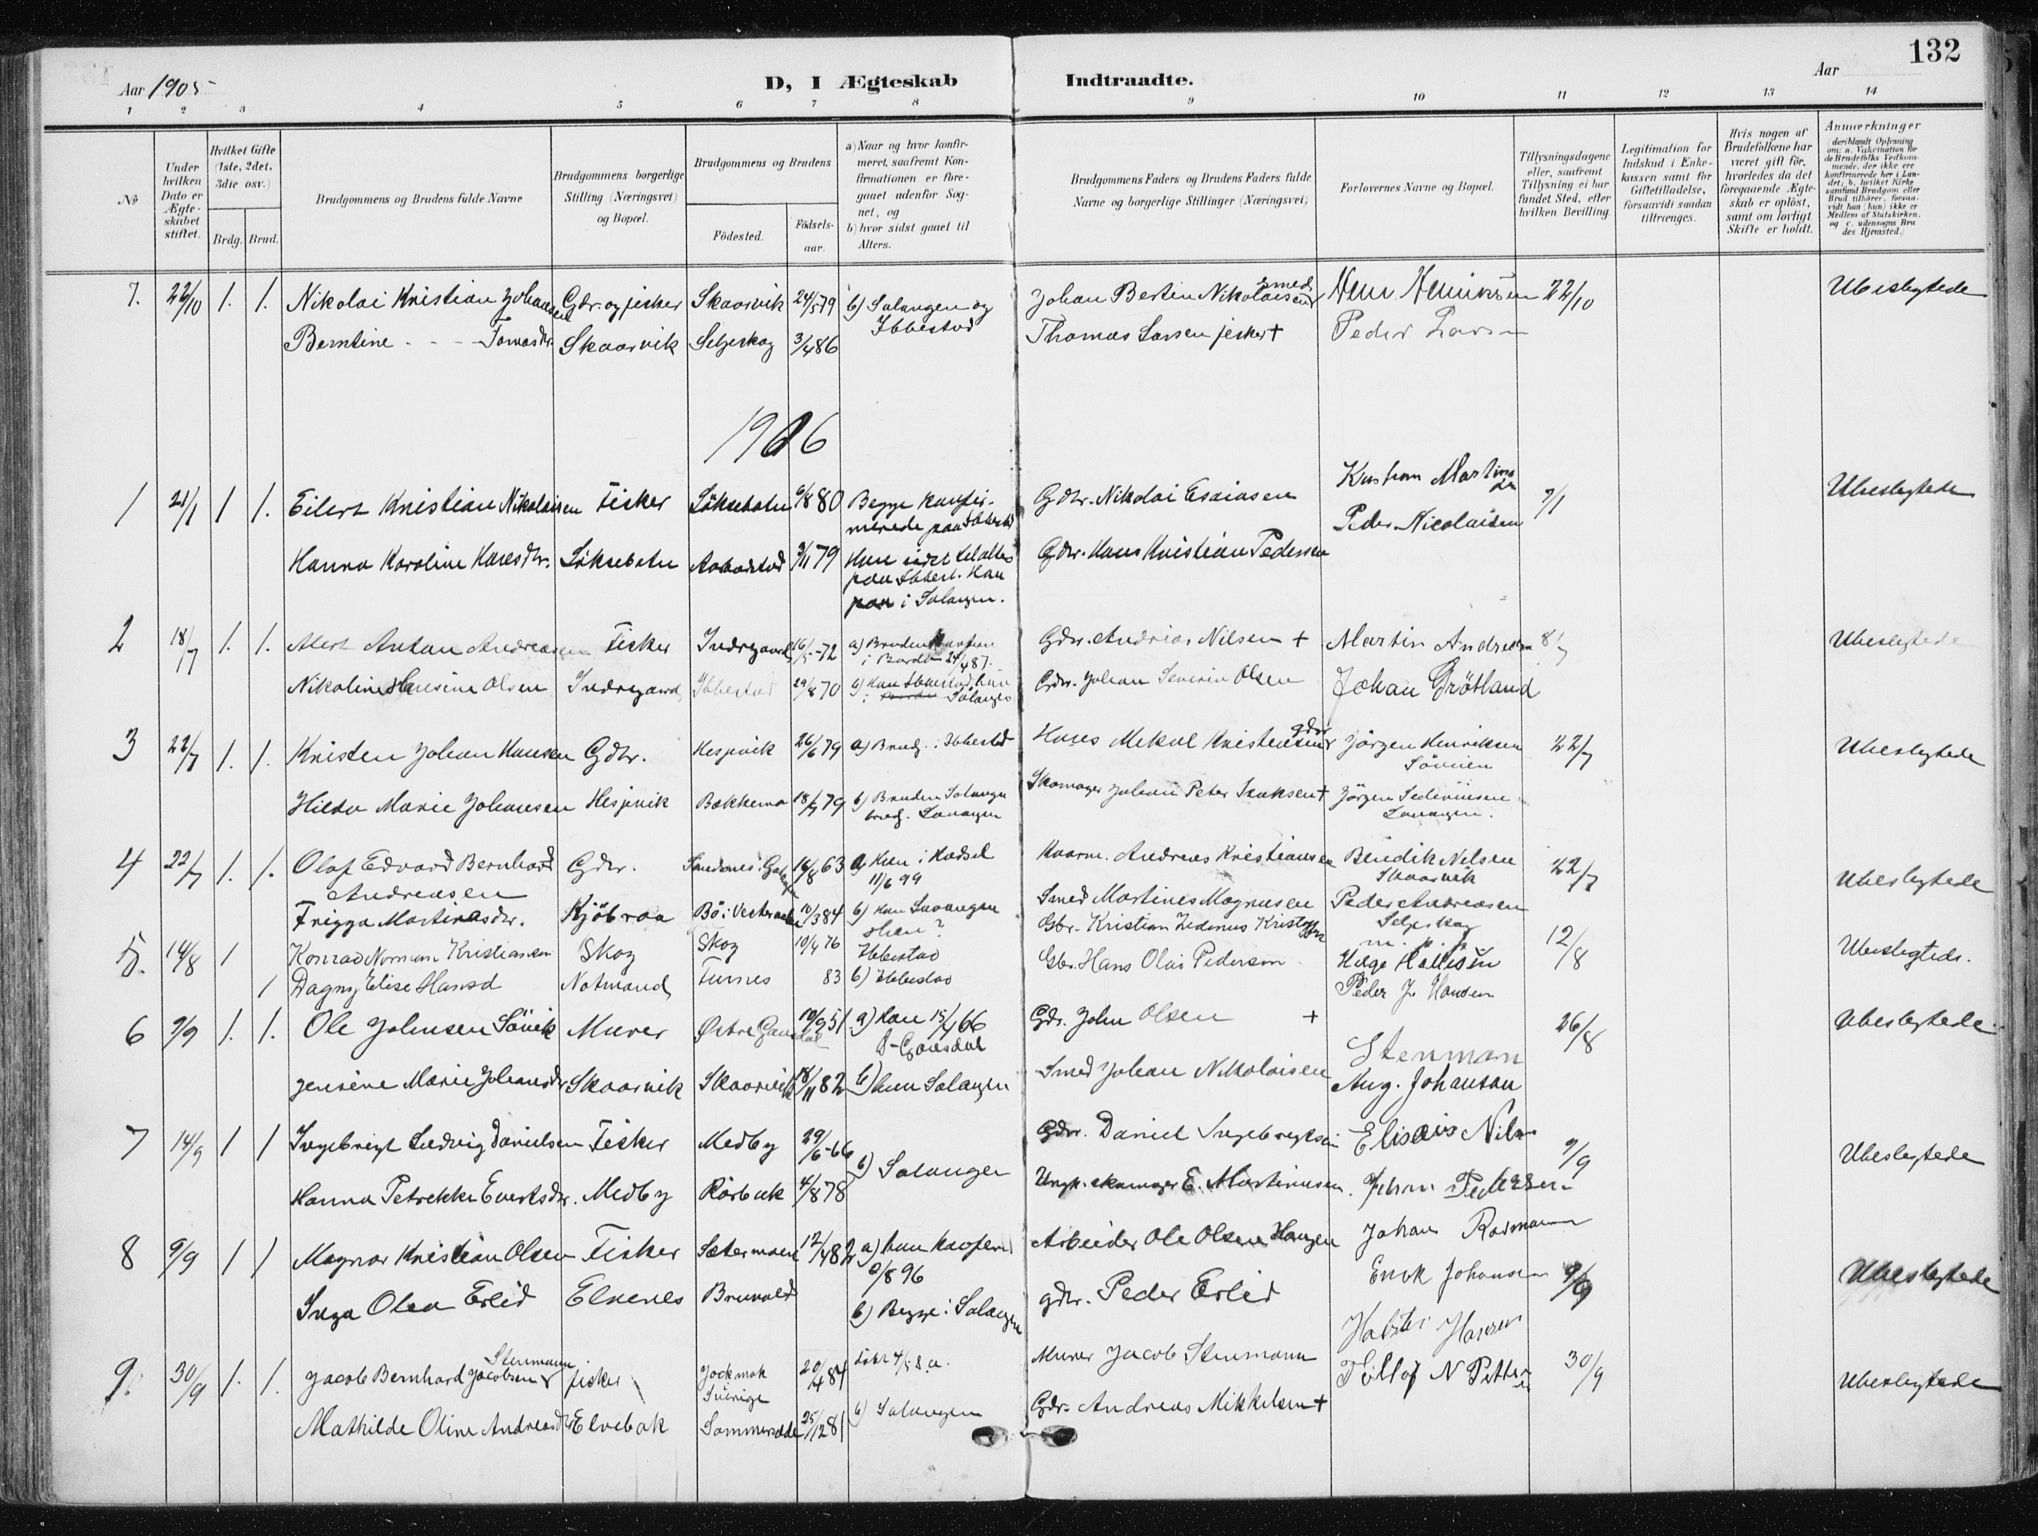 132
Aar 1905
D, I Ægteskab Indtraadte.
Aar
1 2 3 4 5 6 7 8 9 10 11 12 13 14
No
Under hvilken Dato er Ægteskabet stiftet.
Hvilket Gifte (1ste, 2det, 3die osv.)
Brdg. Brud.
Brudgommens og Brudens fulde Navne
Brudgommens borgerlige Stilling (Næringsvei) og Bopæl.
Brudgommens og Brudens
Fødested.
Fødselsaar.
a) Naar og hvor konfirmeret, saafremt Konfirmationen er foregaaet udenfor Sognet, og
b) hvor sidst gaaet til Alters.
Brudgommens Faders og Brudens Faders fulde Navne og borgerlige Stillinger (Næringsvei)
Forlovernes Navne og Bopæl.
Tillysningsdagene eller, saafremt Tillysning ei har fundet Sted, efter hvilken Bevilling.
Legitimation for Indskud i Enkekassen samt for Giftetilladelse, forsaavidt saadan tiltrænges.
Hvis nogen af Brudefolkene har været gift før, hvorledes da det foregaaende Ægteskab er opløst, samt om lovligt Skifte er holdt.
Anmærkninger (deriblandt Oplysning om: a. Vakcination for de Brudefolks Vedkommende, der ikke ere konfirmerede her i Landet; b. hvilket Kirkesamfund Brudgom eller Brud tilhører, forsaavidt han (hun) ikke er Medlem af Statskirken, og c. udensogns Brudes Hjemsted.)
7. 22/10 1. 1. Nikolai Kristian Johansen Gdr. og fisker Skaarvik 24/5 79 b) Salangen og Ibbestad Johan Bertin Nikolaisen smed 22/10 Ubeslegtede
Berntine - - - Tomasdr. Skaarvik Seljeskog 3/4 86 Thomas Larsen fisker + Peder Larsen
1906
1 21/1 1 1. Eilert Kristian Nikolaisen Fisker 6/8 80 Begge konfirmerede paa Ibbestad Gdr. Nikolai Esaiasen 7/1 Ubeslegtede
Peder Nicolaisen
Hanna Karoline Hansdr. 79 Gdr. Hans Kristian Pedersen
paa i Salangen.
2 18/7 1. 1. Albert Antan Andreasen Fisker Indregaard 16/5 72 Gdr. Andrias Nilsen + Martin Andreasen 8/7 Ubeslegtede
Nikoline Hansine Olsen Indregaard Ibbestad 29/8 70 Gdr. Johan Severin Olsen Johan Grötland
3 22/7 1. 1. Kristen Johan Hansen Gdr. Hesjevik 26/6 79 a) Brudg. i Ibbestad Hans Mekal Kristensen gdr Jörgen Henriksen 22/7 Ubeslegtede
Hilda Marie Johansen Hesjevik Bakkemo 18/7 79 b) Bruden Salangen brudg. Lavangen Skomager Johan Peter Isaksen +
Lavangen.
4 22/7 1. 1. Olaf Edvard Bernhard Andreasen Gdr. 16/8 63 a) Han i Hadsel 11/6 99 Kaarm. Andreas Kristiansen Bendik Nilsen Skaarvik 22/7 Ubeslegtede
Frigga Martinesdr. Kjöbraa Bö i Vesteraalen 10/3 84 b) Han Lavangen Smed Martines Magnusen Peder Andreasen Seljeskog
5. 14/8 1 Konrad Norman Kristiansen Skog Skog 10/4 76 Ibbestad Gbr. Kristian Zedenius 12/8 Ubeslegtede.
1 Dagny Elise Hansd Notmand Furnes 83 b) Ibbestad Gbr. Hans Olai Pedersen Helge Hansen
Peder J. Hansen
6 9/9 1. 1. Ole Johnsen Sövik Murer Østre Gausdal 10/9 51 a) Han 15/4 66 Ö-Gausdal Gdr. John Olsen + 26/8 Ubeslegtede
Jensine Marie Johansdr Skaarvik Skaarvik 18/11 82 b) hun Salangen Smed Johan Nikolaisen Stenman
Aug. Johansan
7 14/9 1 1 Ingebrigt Ludvig Danielsen Fisker Medby 29/6 66 b) Salangen Gdr. Daniel Ingebrigtsen Elisæus Nilsen 9/9 Ubeslegtede
Hanna Petrekke Evertsdr. Medby Rörbak 4/8 78 Ungk. skomager E. Martinusen. Johan Pedersen
8 9/9 1 1 Magnar Kristian Olsen Fisker Sætermoen 12/4 82 a) hun konferm 96 Arbeider Ole Olsen Haugen 9/9 Ubeslegtede
Inga Olea Erlid Elvenes Brunvold b) Begge i Salangen gdr. Peder Erlid Erik Johansen
9. 30/9 1. 1. Jacob Bernhard Jacobsen Stenmann fisker Jockmok Sverige 20/4 84 Murer Jacob Stenmann 30/9 Ubeslegtede
Mathilde Oline Andreasdr Elvebak Sommersæde 25/12 81 b) Salangen Gdr. Andreas Mikkelsen +